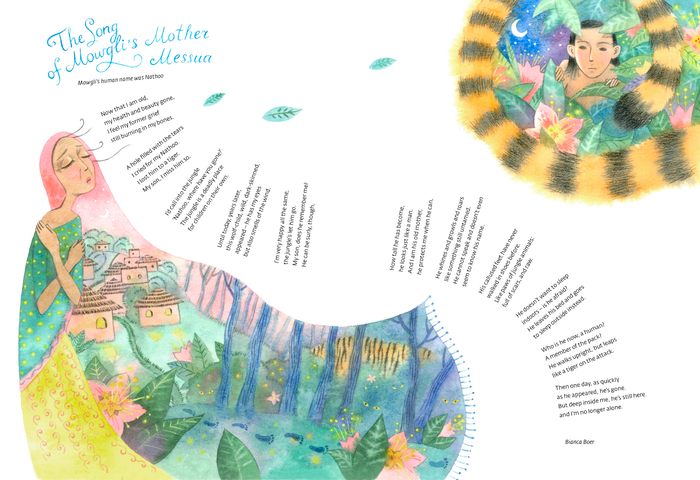 The Song
of Mowgli's Mother
Messua
Mowgli's human name was Nathoo
Now that I am old,
my health and beauty gone,
I feel my former grief
still burning in my bones.
A hole filled with the tears
I cried for my Nathoo.
I lost him to a tiger.
My son, I miss him so.
I'd call into the jungle
'Nathoo, where have you gone?'
The jungle is a deadly place
for children on their own.
Until today, years later,
this wolf-child, wild, dark-skinned,
appeared – he has my eyes
but also smells of the wind.
I'm very happy all the same,
the jungle's let him go.
My son, does he remember me!
He can be surly, though.
How tall he has become,
he looks just like a man.
And I am his old mother,
he protects me when he can.
He whines and growls and roars
like something still untamed.
He cannot speak and doesn't even
seem to know his name.
His callused feet have never
walked in shoes before.
Like paws of jungle animals:
full of scars, and raw.
He doesn't want to sleep
indoors – is he afraid?
He leaves his bed and goes
to sleep outside instead.
Who is he now, a human?
A member of the pack?
He walks upright, but leaps
like a tiger on the attack.
Then one day, as quickly
as he appeared, he's gone.
But deep inside me, he's still here.
and I'm no longer alone.
Bianca Boer